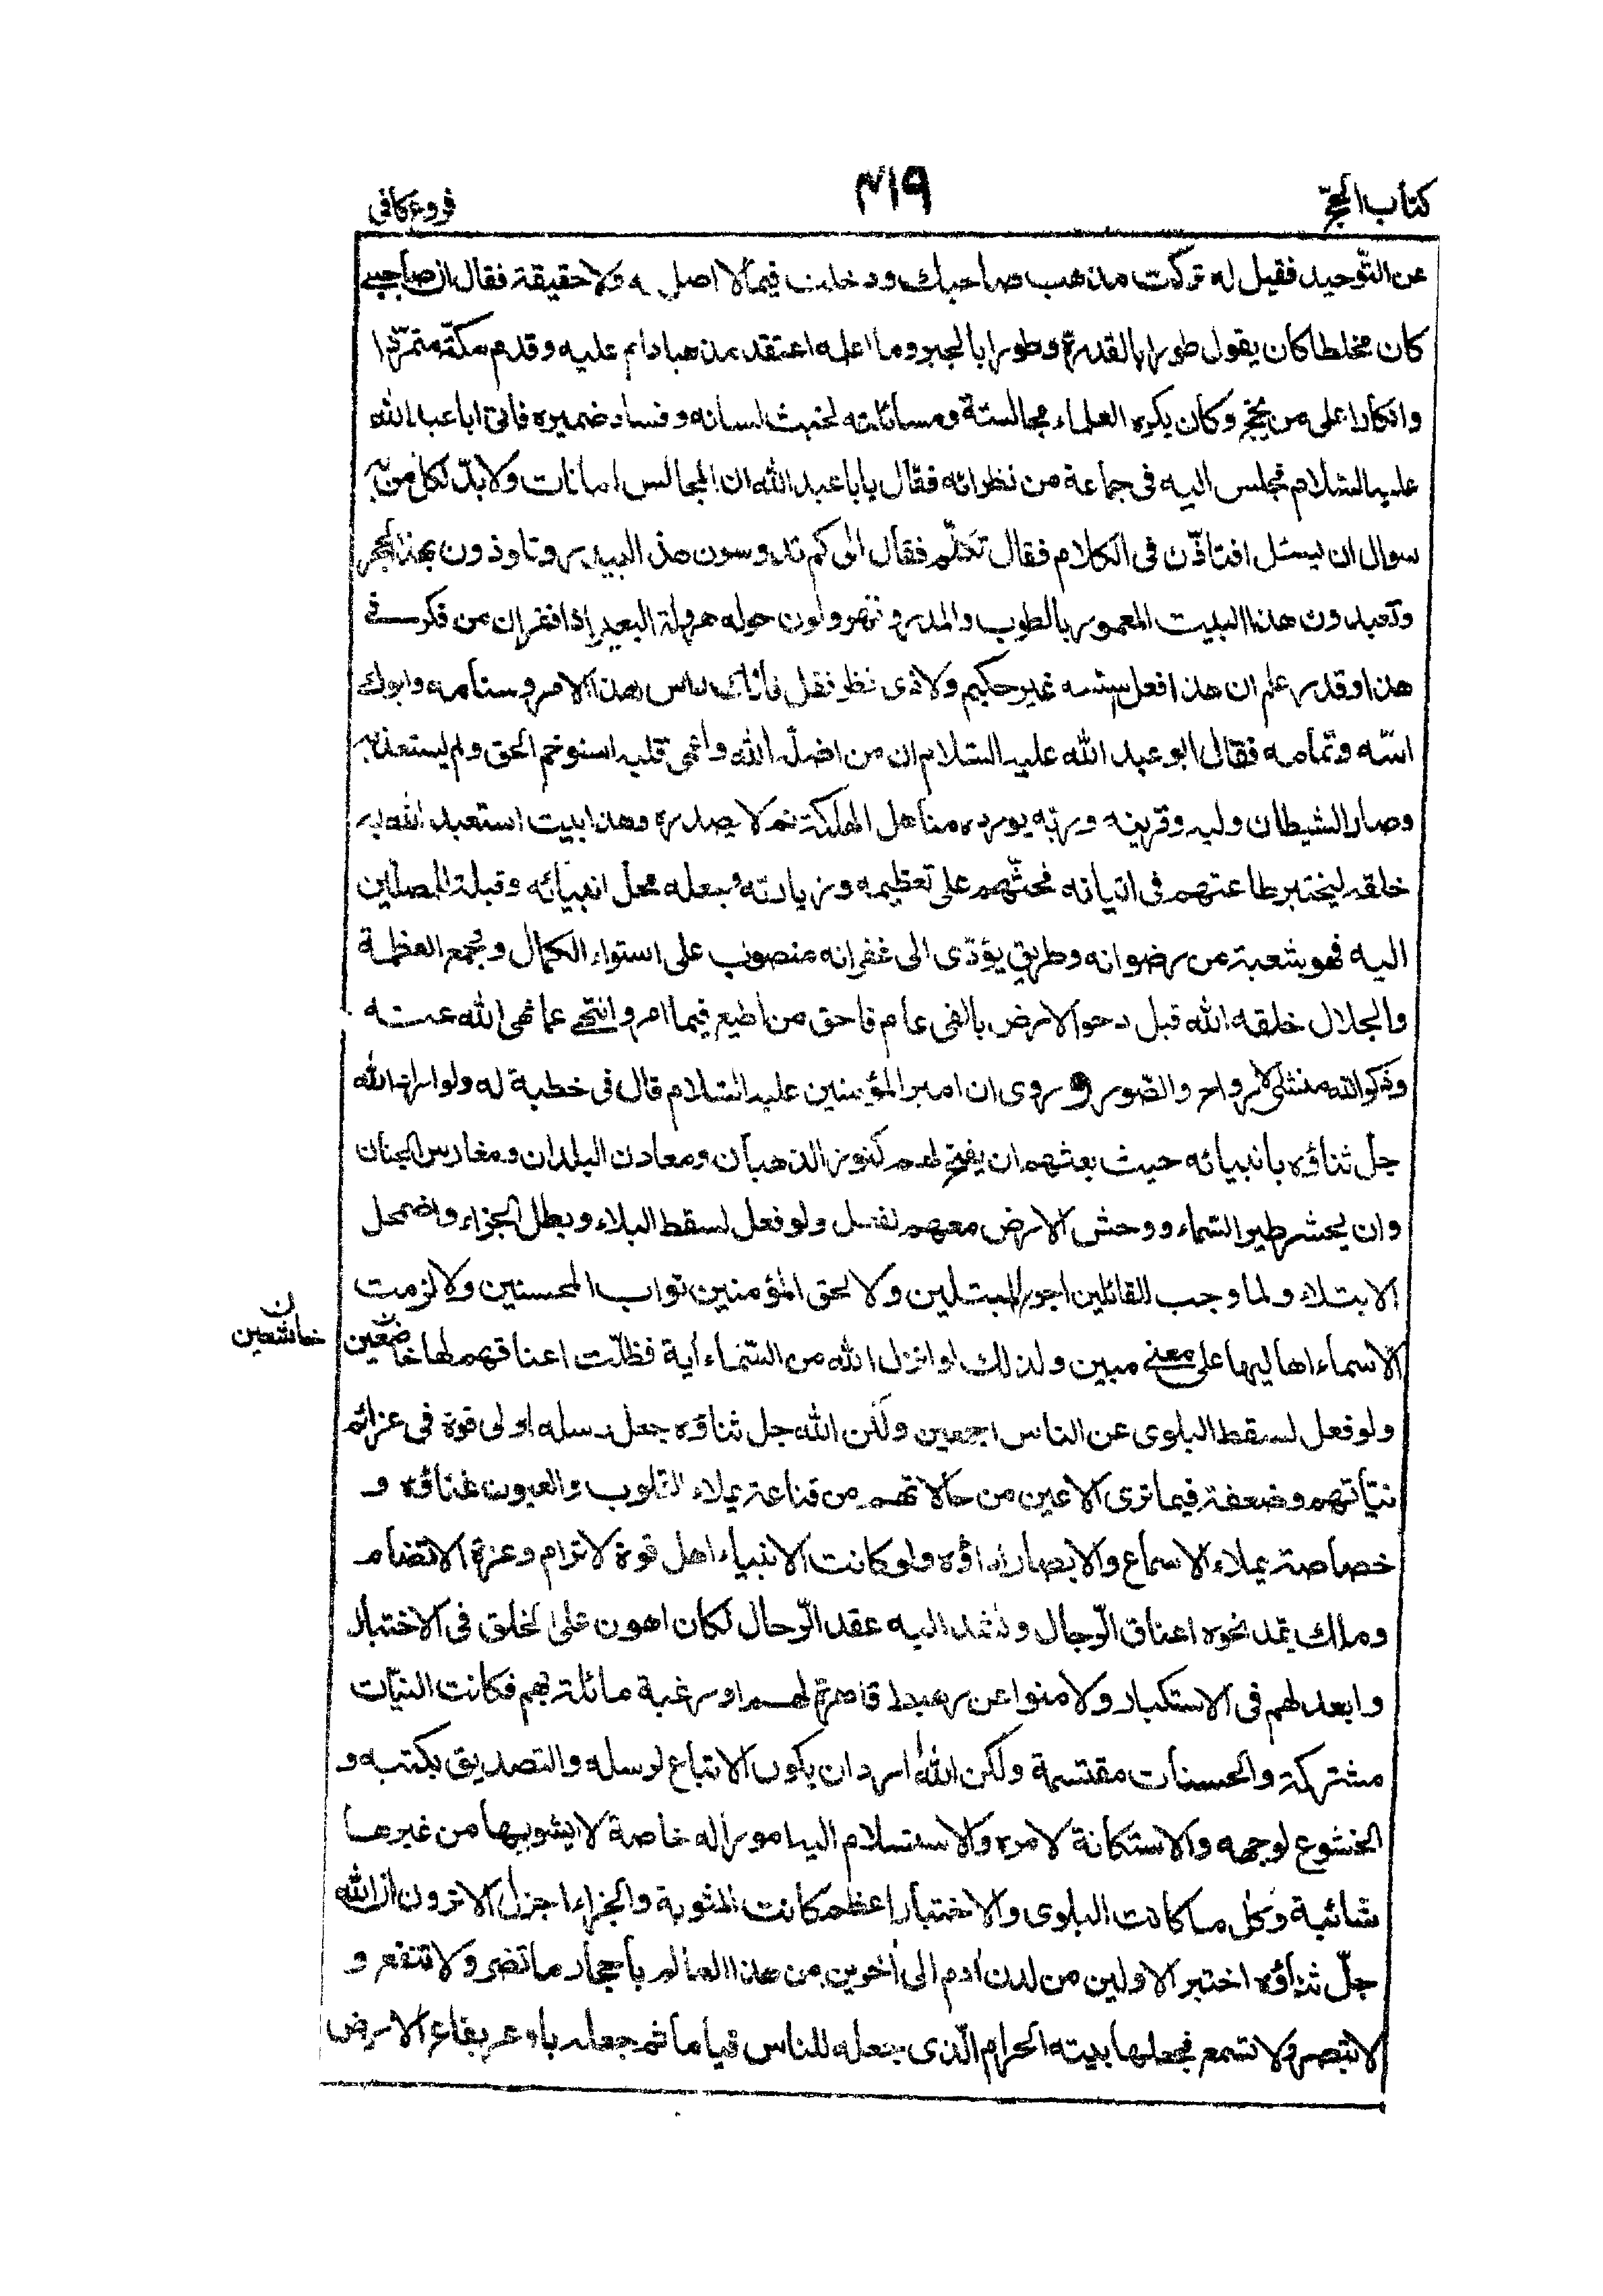 كتاب الحجّ
٢١٩
فروع كافى
عن التّوحيد فقيل له تركت مذهب صاحبك ودخلت فيما لا اصل له ولا حقيقة فقال ان صاحبي
كان مخلطا كان يقول طورا بالقدرة وطورا بالجبر وما اعلمه اعتقد مذهبا دام عليه وقدم مكّة متمرّدا
وانكارا على من يحج وكان يكره العلماء مجالسته ومسائلته لخبث لسانه وفساد ضميره فاتى ابا عبد الله
عليه السلام فجلس اليه فى جماعة من نظرائه فقال يا ابا عبد الله ان المجالس امانات ولا بدّ لكل من به
سوال ان يسئل افتاذن فى الكلام فقال تكلّم فقال الى كم تدوسون هذا البيدر وتلوذون بهذا الحجر
وتعبدون هذا البيت المعمور بالطوب والمدر وتهرولون حوله هرولة البعير اذا نفر ان من فكر في
هذا وقدر علم ان هذا فعل اسسه غير حكيم ولا ذى نظر فقل فانك راس هذا الامر وسنامه وابوك
اسّه وتمامه فقال ابو عبد الله عليه السلام ان من اضلّه الله واعمى قلبه استوخم الحق ولم يستعذبه
وصار الشيطان وليه وقرينه وربّه يورده مناهل الهلكة ثم لا يصدره وهذا بيت استعبد الله به
خلقه ليختبر طاعتهم فى اتيانه فحثّهم على تعظيمه وزيارته وجعله محل انبيائه وقبلة للمصلين
اليه فهو شعبة من رضوانه وطريق يؤدّى الى غفرانه منصوب على استواء الكمال ومجمع العظمة
والجلال خلقه الله قبل دحو الارض بالفى عام فاحق من اطيع فيما امر وانتهى عما نهى الله عنه
وذكر الله منشئ الارواح والصّور وروى ان امير المؤمنين عليه السلام قال فى خطبة له ولو اراد الله
جلّ ثناؤه بانبيائه حيث بعثهم ان يفتح لهم كنوز الذهبان ومعادن البلدان ومغارس الجنان
وان يحشر طير السّماء ووحش الارض معهم لفعل ولو فعل لسقط البلاء وبطل الجزاء واضمحل
الابتلاء ولما وجب للقائلين اجور المبتلين ولا لحق المؤمنين ثواب المحسنين ولا لزمت
الاسماء اهاليها على معنى مبين ولذلك لو انزل الله من السّماء اية فظلّت اعناقهم لها خاضعين
ن
خاشعين
ولو فعل لسقط البلوى عن الناس اجمعين ولكن الله جل ثناؤه جعل رسله اولى قوة فى عزائم
نيّاتهم وضعفة فيما ترى الاعين من حالاتهم من قناعة يملاء القلوب والعيون غناؤه و
خصاصة يملاء الاسماع والابصار اذاؤه ولو كانت الانبياء اهل قوة لا ترام وعزة لا تضام
وملك يمّد نحوه اعناق الرّجال وتشد اليه عقد الرّحال لكان اهون على الخلق فى الاختبار
وابعد لهم فى الاستكبار ولامنوا عن رهبة قاهرة لهم او رغبة مائلة بهم فكانت النيّات
مشتركة والحسنات مقتسمة ولكن الله اراد ان يكون الاتباع لرسله والتصديق بكتبه و
الخشوع لوجهه والاستكانة لامره والاستسلام اليه امورا له خاصة لا يشوبها من غيرها
شائبة وكل ما كانت البلوى والاختبار اعظم كانت المثوبة والجزاء اجزل الا ترون ان الله
جلّ ثناؤه اختبر الاولين من لدن ادم الى اخرين من هذا العالم باحجار ما تضر ولا تنفع و
لا تبصر ولا تسمع فجعلها بيته الحرام الّذى جعله للناس قياما ثم جعله باوعر بقاع الارض